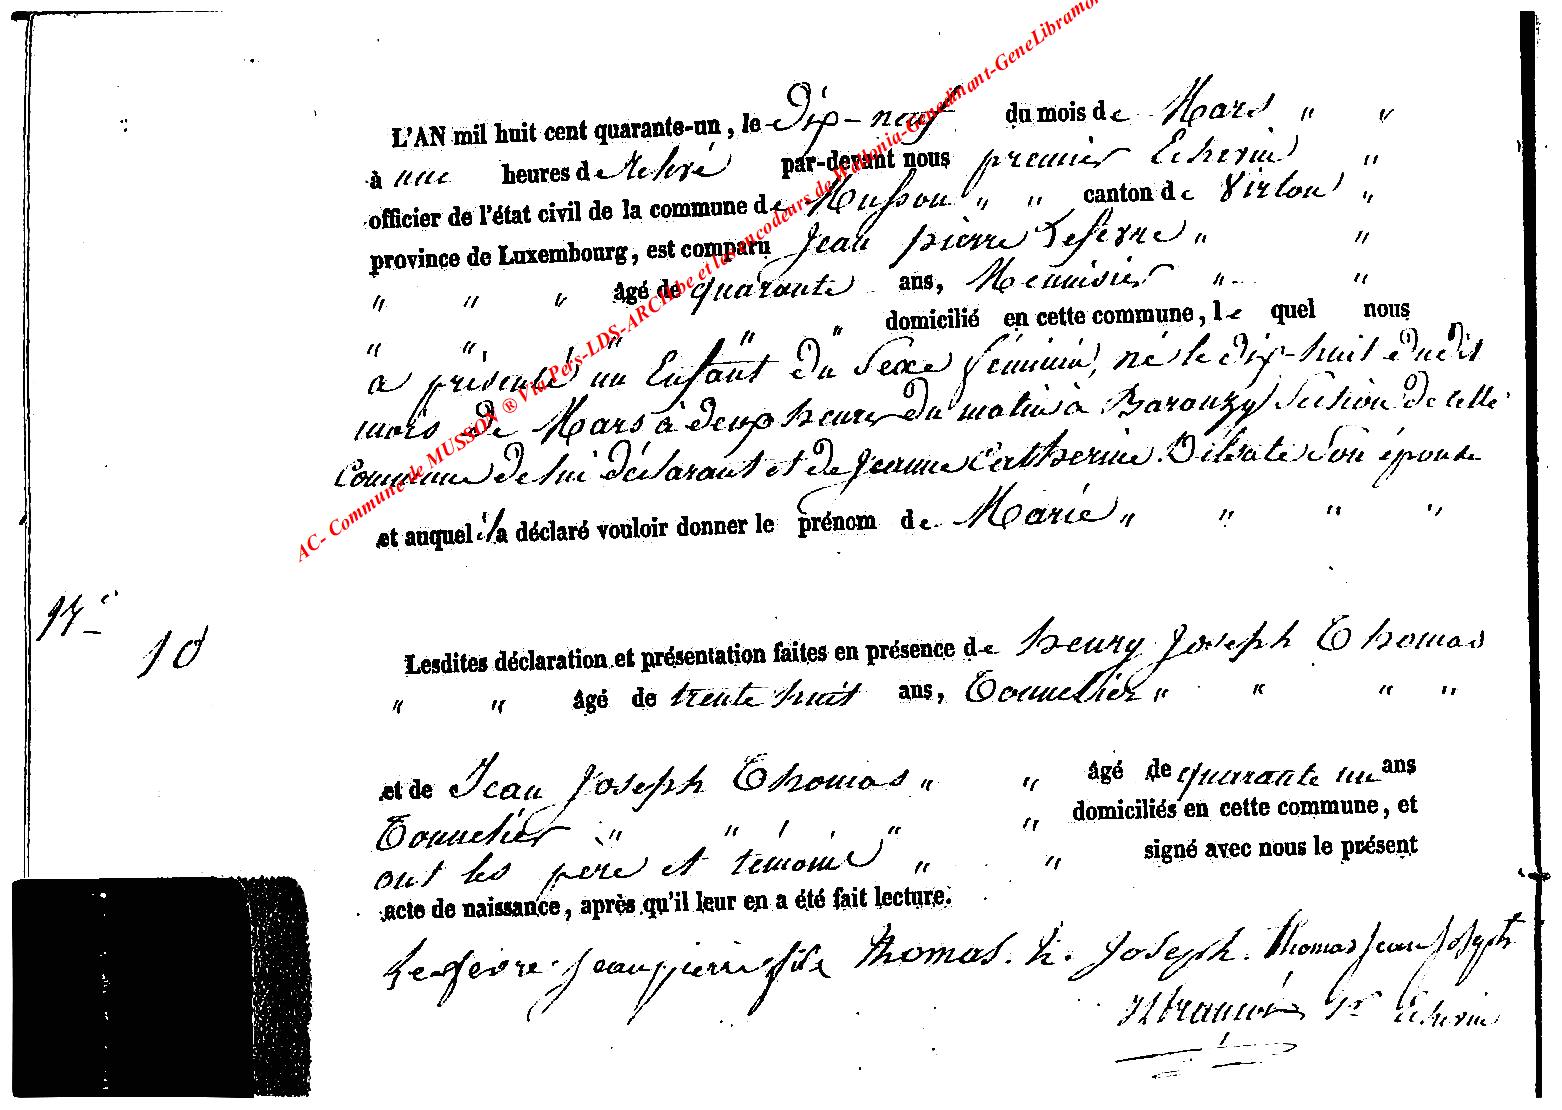 AC- Commune de MUSSON ® Via Pers-LDS-ARCH.be et les encodeurs de Wallonia-Genedinant-GeneLibramon
L'AN mil huit cent quarante-un, le Dix-neuf du mois de Mars " "
à une heures de relevé par-devant nous premier Echevin "
officier de l'état civil de la commune de Musson " " canton de Virton "
province de Luxembourg, est comparu Jean pierre Lefevre " "
" " " âgé de quarante ans, Menuisier " "
" " " " " domicilié en cette commune, le quel nous
a présenté un Enfant du Sexe féminin, né le dix-huit dudit
mois de Mars à deux heures du matin à Baranzy Section de cette
Commune de lui déclarant et de Jeanne Catherine son épouse
et auquel il a déclaré vouloir donner le prénom de Marie " " " "
10
Lesdites déclaration et présentation faites en présence de henry Joseph Thomas
" " âgé de trente huit ans, Tonnelier " " " "
et de Jean Joseph Thomas " " âgé de quarante un ans
Tonnelier " " " " domiciliés en cette commune, et
ont les père et témoins " " signé avec nous le présent
acte de naissance, après qu'il leur en a été fait lecture.
Lefevre Jean pierre fils Thomas. h. Joseph. Thomas Jean Joseph
1er Echevin